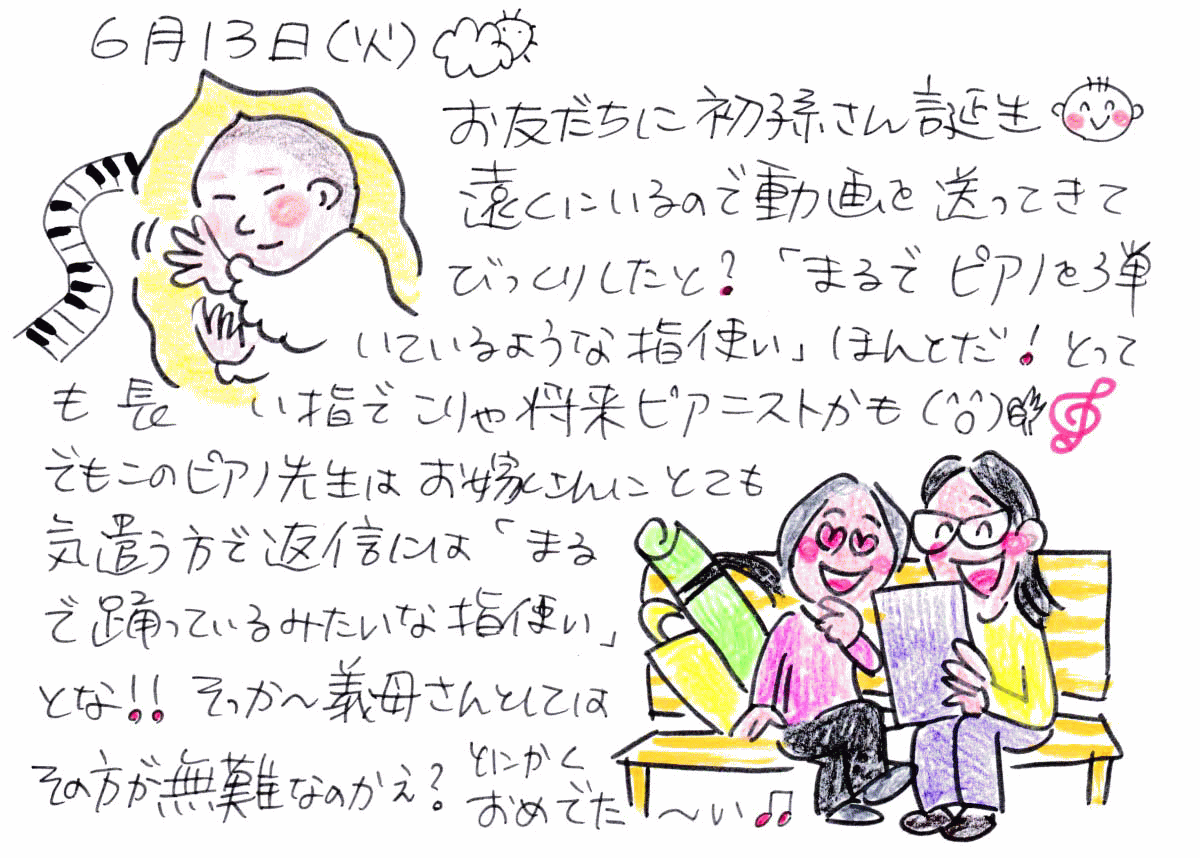 6月13日(火)
お友だちに初孫さん誕生
遠くにいるので動画を送ってきて
びっくりしたと?「まるでピアノを弾
いているような指使い」ほんとだ!とって
も長い指でこりゃ将来ピアニストかも(^o^)
でもこのピアノ先生はお嫁さんにとても
気遣う方で返信には「まる
で踊っているみたいな指使い」
とな!!そっか〜義母さんとしては
その方が無難なのかえ?とにかく
おめでた〜い♫